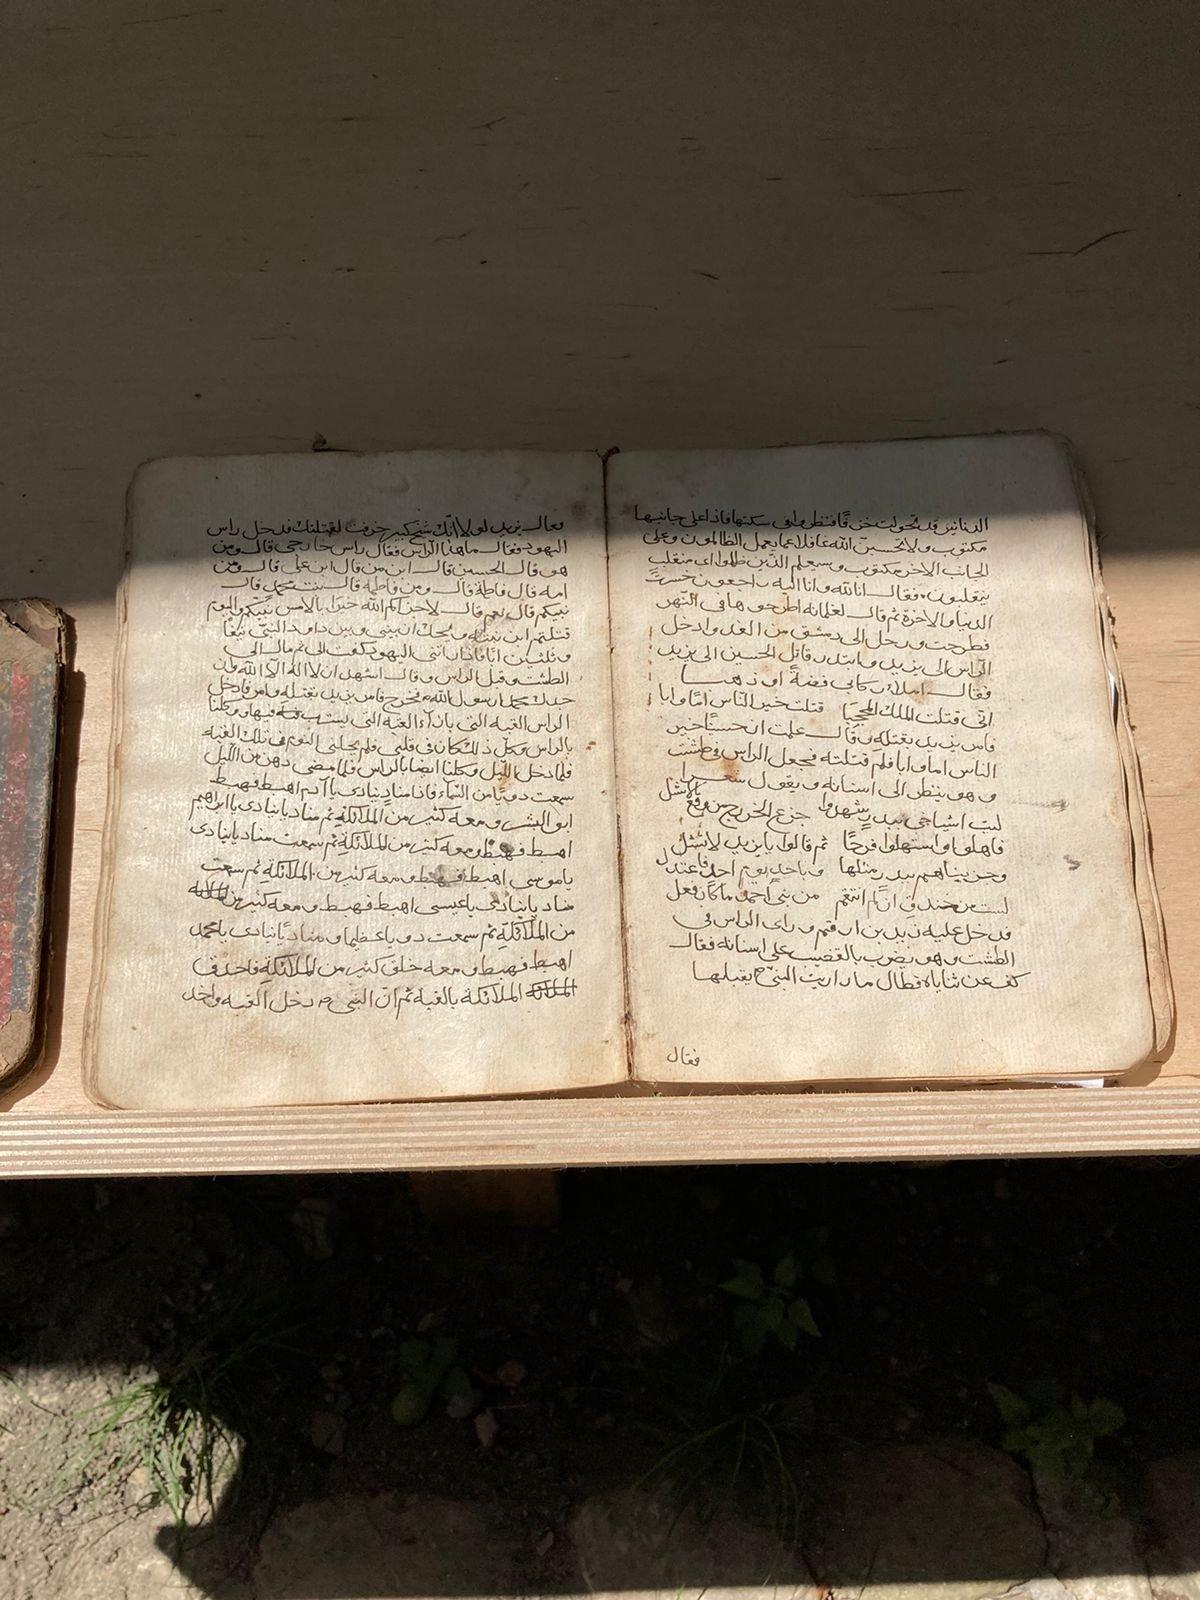 الدنانير قد تحولت خزفًا فنظروا في سكتها فاذا على جانبها
مكتوب ولا تحسبن الله غافلا عما يعمل الظالمون وعلى
الجانب الاخر مكتوب وسيعلم الذين ظلموا اي منقلب
ينقلبون فقال انا لله وانا اليه راجعون خسرت
الدنيا والاخرة ثم قال لغلمانه اطرحوها في النهر
فطرحت ورحل الى دمشق من الغد وادخل
الراس الى يزيد وابتدر قاتل الحسين الى يزيد
فقال املا ركابي فضة او ذهبا
اني قتلت الملك المحجبا قتلت خير الناس امًا وابا
فامر يزيد بقتله وقال علمت ان حسينًا خير
الناس اما وابا فلم قتلته فجعل الراس في طشت
وهو ينظر الى اسنانه ويقول شعرا
ليت اشياخي ببدر شهدوا جزع الخزرج من وقع الاسل
فاهلوا واستهلوا فرحًا ثم قالوا يا يزيد لا تشل
وجزيناهم ببدر مثلها وباحد يوم احد فاعتدل
لست من خندف ان لم انتقم من بني احمد ما كان فعل
فدخل عليه زيد بن ارقم وراى الراس في
الطشت وهو يضرب بالقضيب على اسنانه فقال
كف عن ثناياه فطال ما رايت النبي ص يقبلها
فقال
فقال يزيد لولا انك شيخ كبير خرفت لقتلتك فدخل راس
اليهود فقال ما هذا الراس فقال راس خارجي قال ومن
هو قال الحسين قال ابن من قال ابن علي قال ومن
امه قال فاطمة قال ومن فاطمة قال بنت محمد قال
نبيكم قال نعم قال لا جزاكم الله خيرا بالامس نبيكم واليوم
قتلتم ابن بنته ويحك ان بيني وبين داود النبي نيفًا
وثلثين ابًا فاذا راتني اليهود كفرت الي ثم مال الى
الطشت وقبل الراس وقال اشهد ان لا اله الا الله وان
جدك محمد رسول الله وخرج فامر يزيد بقتله وامر فادخل
الراس القبة التي بازاء القبة التي يشرب فيها ووكلنا
بالراس وكل ذلك كان في قلبي فلم يحملني النوم في تلك القبة
فلما دخل الليل وكلنا ايضا بالراس فلما مضى دهن من الليل
سمعت دويًا من السماء فاذا منادٍ ينادي يا آدم اهبط فهبط
ابو البشر ومعه كثير من الملائكة ثم مناديا ينادي يا ابراهيم
اهبط فهبط ومعه كثير من الملائكة ثم سمعت مناديا ينادي
يا موسى اهبط فهبط ومعه كثير من الملائكة ثم سمعت
مناديا ينادي يا عيسى اهبط فهبط ومعه كثير من الملائكة
من الملائكة ثم سمعت دويا عظيما ومناديًا ينادي يا محمد
اهبط فهبط ومعه خلق كثير من الملائكة فاحدق
الملائكة الملائكة بالقبة ثم ان النبي ص دخل القبة واخذ